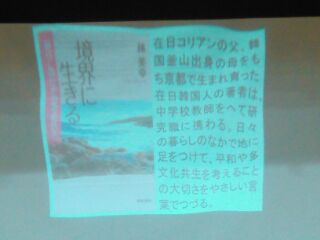 境界に
生きる
孫美幸
在日コリアンの父、韓
国釜山出身の母をも
ち京都で生まれ育った
在日韓国人の著者は、
中学校教師をへて研
究職に携わる。日々
の暮らしのなかで地に
足をつけて、平和や多
文化共生を考えること
の大切さをやさしい言
葉でつづる。